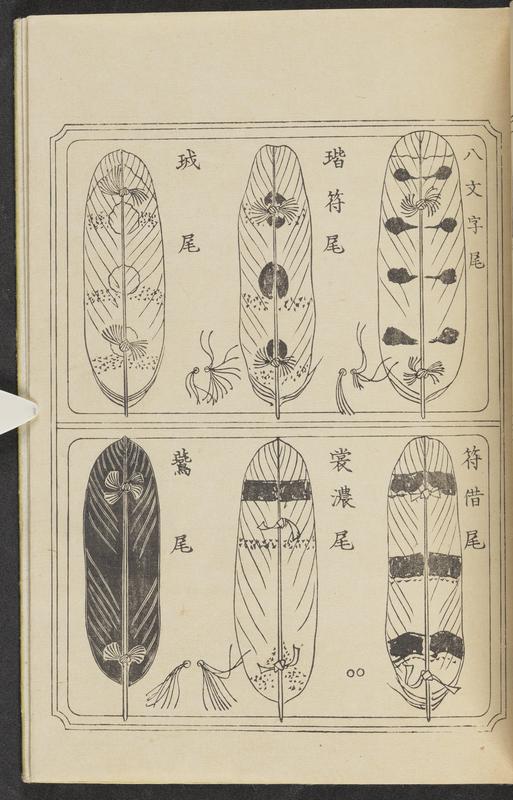 八文字尾
瑎符尾
珬尾
符借尾
裳濃尾
鷲尾